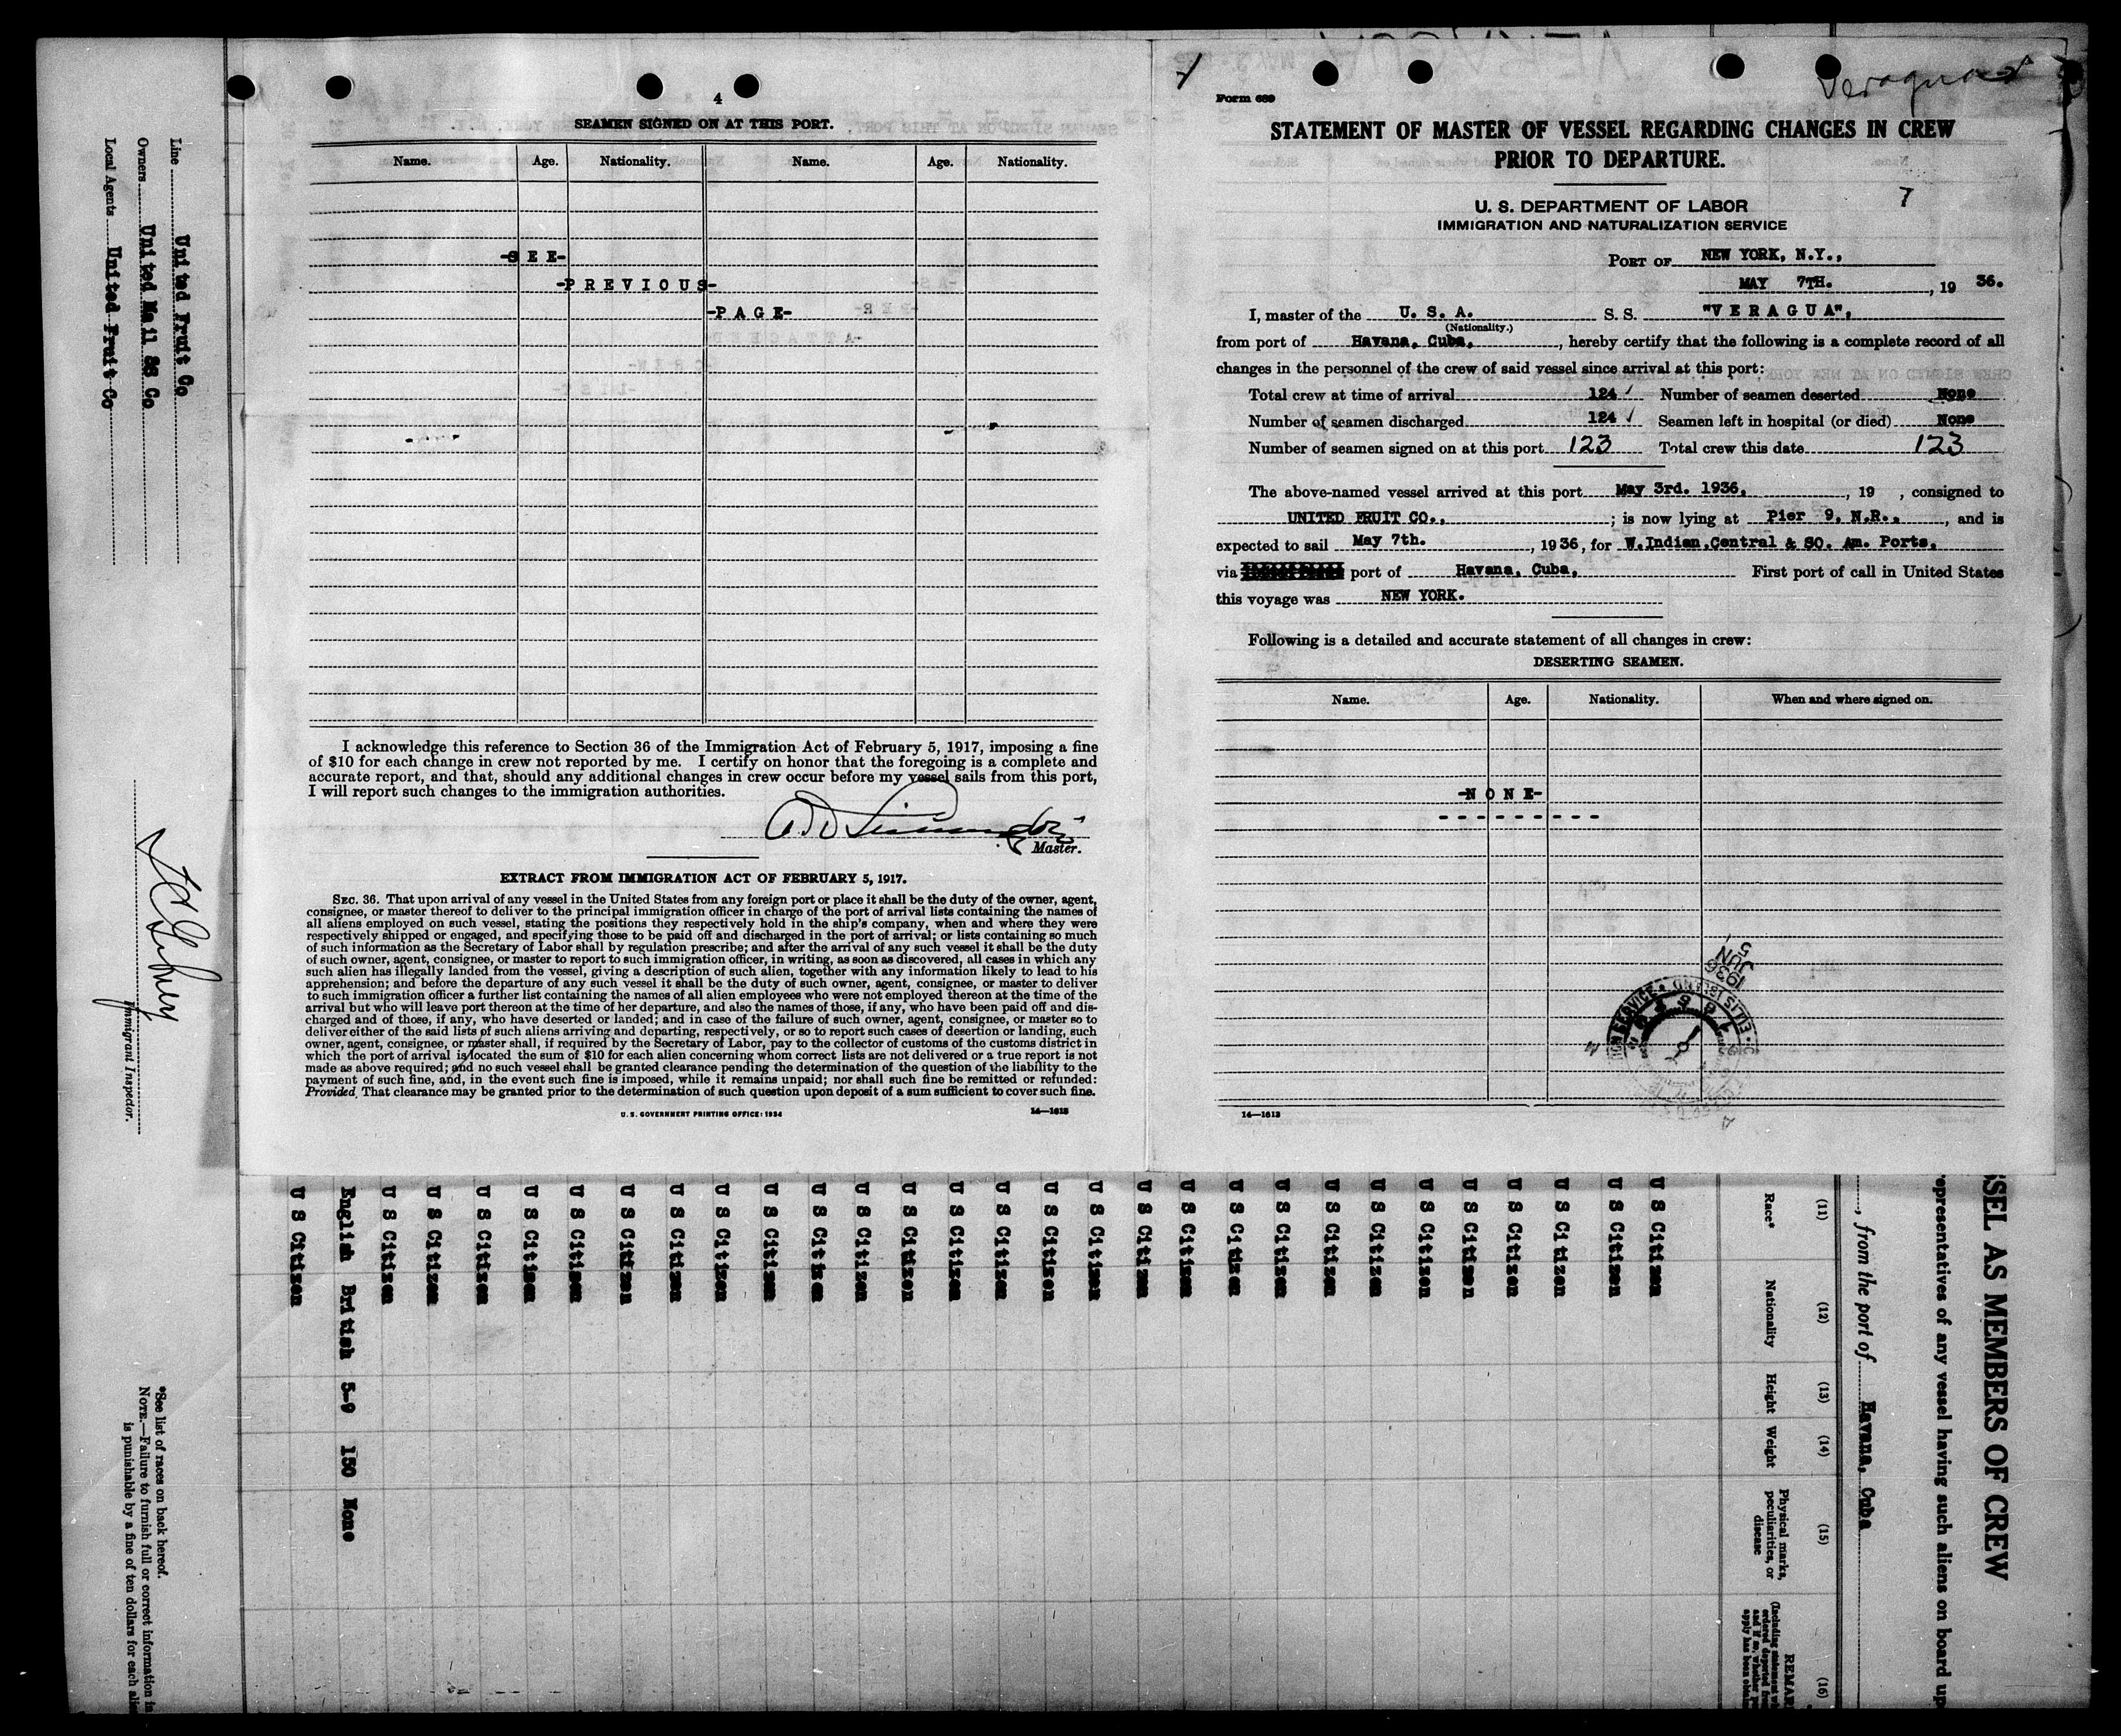 4
SEAMEN SIGNED ON AT THIS PORT.
Name. Age. Nationality. Name. Age. Nationality.
-S E E-
-P R E V I O U S-
-P A G E-
I acknowledge this reference to Section 36 of the Immigration Act of February 5, 1917, imposing a fine
of $10 for each change in crew not reported by me. I certify on honor that the foregoing is a complete and
accurate report, and that, should any additional changes in crew occur before my vessel sails from this port,
I will report such changes to the immigration authorities.
Master.
EXTRACT FROM IMMIGRATION ACT OF FEBRUARY 5, 1917.
SEC. 36. That upon arrival of any vessel in the United States from any foreign port or place it shall be the duty of the owner, agent,
consignee, or master thereof to deliver to the principal immigration officer in charge of the port of arrival lists containing the names of
all aliens employed on such vessel, stating the positions they respectively hold in the ship's company, when and where they were
respectively shipped or engaged, and specifying those to be paid off and discharged in the port of arrival; or lists containing so much
of such information as the Secretary of Labor shall by regulation prescribe; and after the arrival of any such vessel it shall be the duty
of such owner, agent, consignee, or master to report to such immigration officer, in writing, as soon as discovered, all cases in which any
such alien has illegally landed from the vessel, giving a description of such alien, together with any information likely to lead to his
apprehension; and before the departure of any such vessel it shall be the duty of such owner, agent, consignee, or master to deliver
to such immigration officer a further list containing the names of all alien employees who were not employed thereon at the time of the
arrival but who will leave port thereon at the time of her departure, and also the names of those, if any, who have been paid off and dis-
charged and of those, if any, who have deserted or landed; and in case of the failure of such owner, agent, consignee, or master so to
deliver either of the said lists of such aliens arriving and departing, respectively, or so to report such cases of desertion or landing, such
owner, agent, consignee, or master shall, if required by the Secretary of Labor, pay to the collector of customs of the customs district in
which the port of arrival is located the sum of $10 for each alien concerning whom correct lists are not delivered or a true report is not
made as above required; and no such vessel shall be granted clearance pending the determination of the question of the liability to the
payment of such fine, and, in the event such fine is imposed, while it remains unpaid; nor shall such fine be remitted or refunded:
Provided, That clearance may be granted prior to the determination of such question upon deposit of a sum sufficient to cover such fine.
U. S. GOVERNMENT PRINTING OFFICE: 1934 14—1613
Veragua
Form 689
STATEMENT OF MASTER OF VESSEL REGARDING CHANGES IN CREW
PRIOR TO DEPARTURE.
7
U. S. DEPARTMENT OF LABOR
IMMIGRATION AND NATURALIZATION SERVICE
PORT OF NEW YORK, N.Y.,
MAY 7TH. , 19 36.
I, master of the U. S. A. S. S. "V E R A G U A",
(Nationality.)
from port of Havana, Cuba, , hereby certify that the following is a complete record of all
changes in the personnel of the crew of said vessel since arrival at this port:
Total crew at time of arrival 124 Number of seamen deserted None
Number of seamen discharged 124 Seamen left in hospital (or died) None
Number of seamen signed on at this port 123 Total crew this date 123
The above-named vessel arrived at this port May 3rd. 1936, , 19 , consigned to
UNITED FRUIT CO., ; is now lying at Pier 9, N.R., , and is
expected to sail May 7th. , 1936, for W.Indian,Central & SO. Am. Ports,
via port of Havana, Cuba, First port of call in United States
this voyage was NEW YORK.
Following is a detailed and accurate statement of all changes in crew:
DESERTING SEAMEN.
Name. Age. Nationality. When and where signed on.
-N O N E-
1936
JUN
5
ELLIS ISLAND
14—1613
Line United Fruit Co
Owners United Mail SS Co
Local Agents United Fruit Co
Immigrant Inspector.
*See list of races on back hereof.
NOTE.—Failure to furnish full or correct information in
is punishable by a fine of ten dollars for each alie
SSEL AS MEMBERS OF CREW
epresentatives of any vessel having such aliens on board up
, from the port of Havana, Cuba
(11) (12) (13) (14) (15) (16)
Race* Nationality Height Weight Physical marks, peculiarities, or disease REMAR
U S Citizen
U S Citizen
U S Citizen
U S Citizen
U S Citizen
U S Citizen
U S Citizen
U S Citizen
U S Citizen
U S Citizen
U S Citizen
U S Citizen
U S Citizen
U S Citizen
U S Citizen
U S Citizen
U S Citizen
U S Citizen
U S Citizen
U S Citizen
U S Citizen
U S Citizen
U S Citizen
U S Citizen
U S Citizen
U S Citizen
U S Citizen
U S Citizen
English British 5-9 150 None
U S Citizen